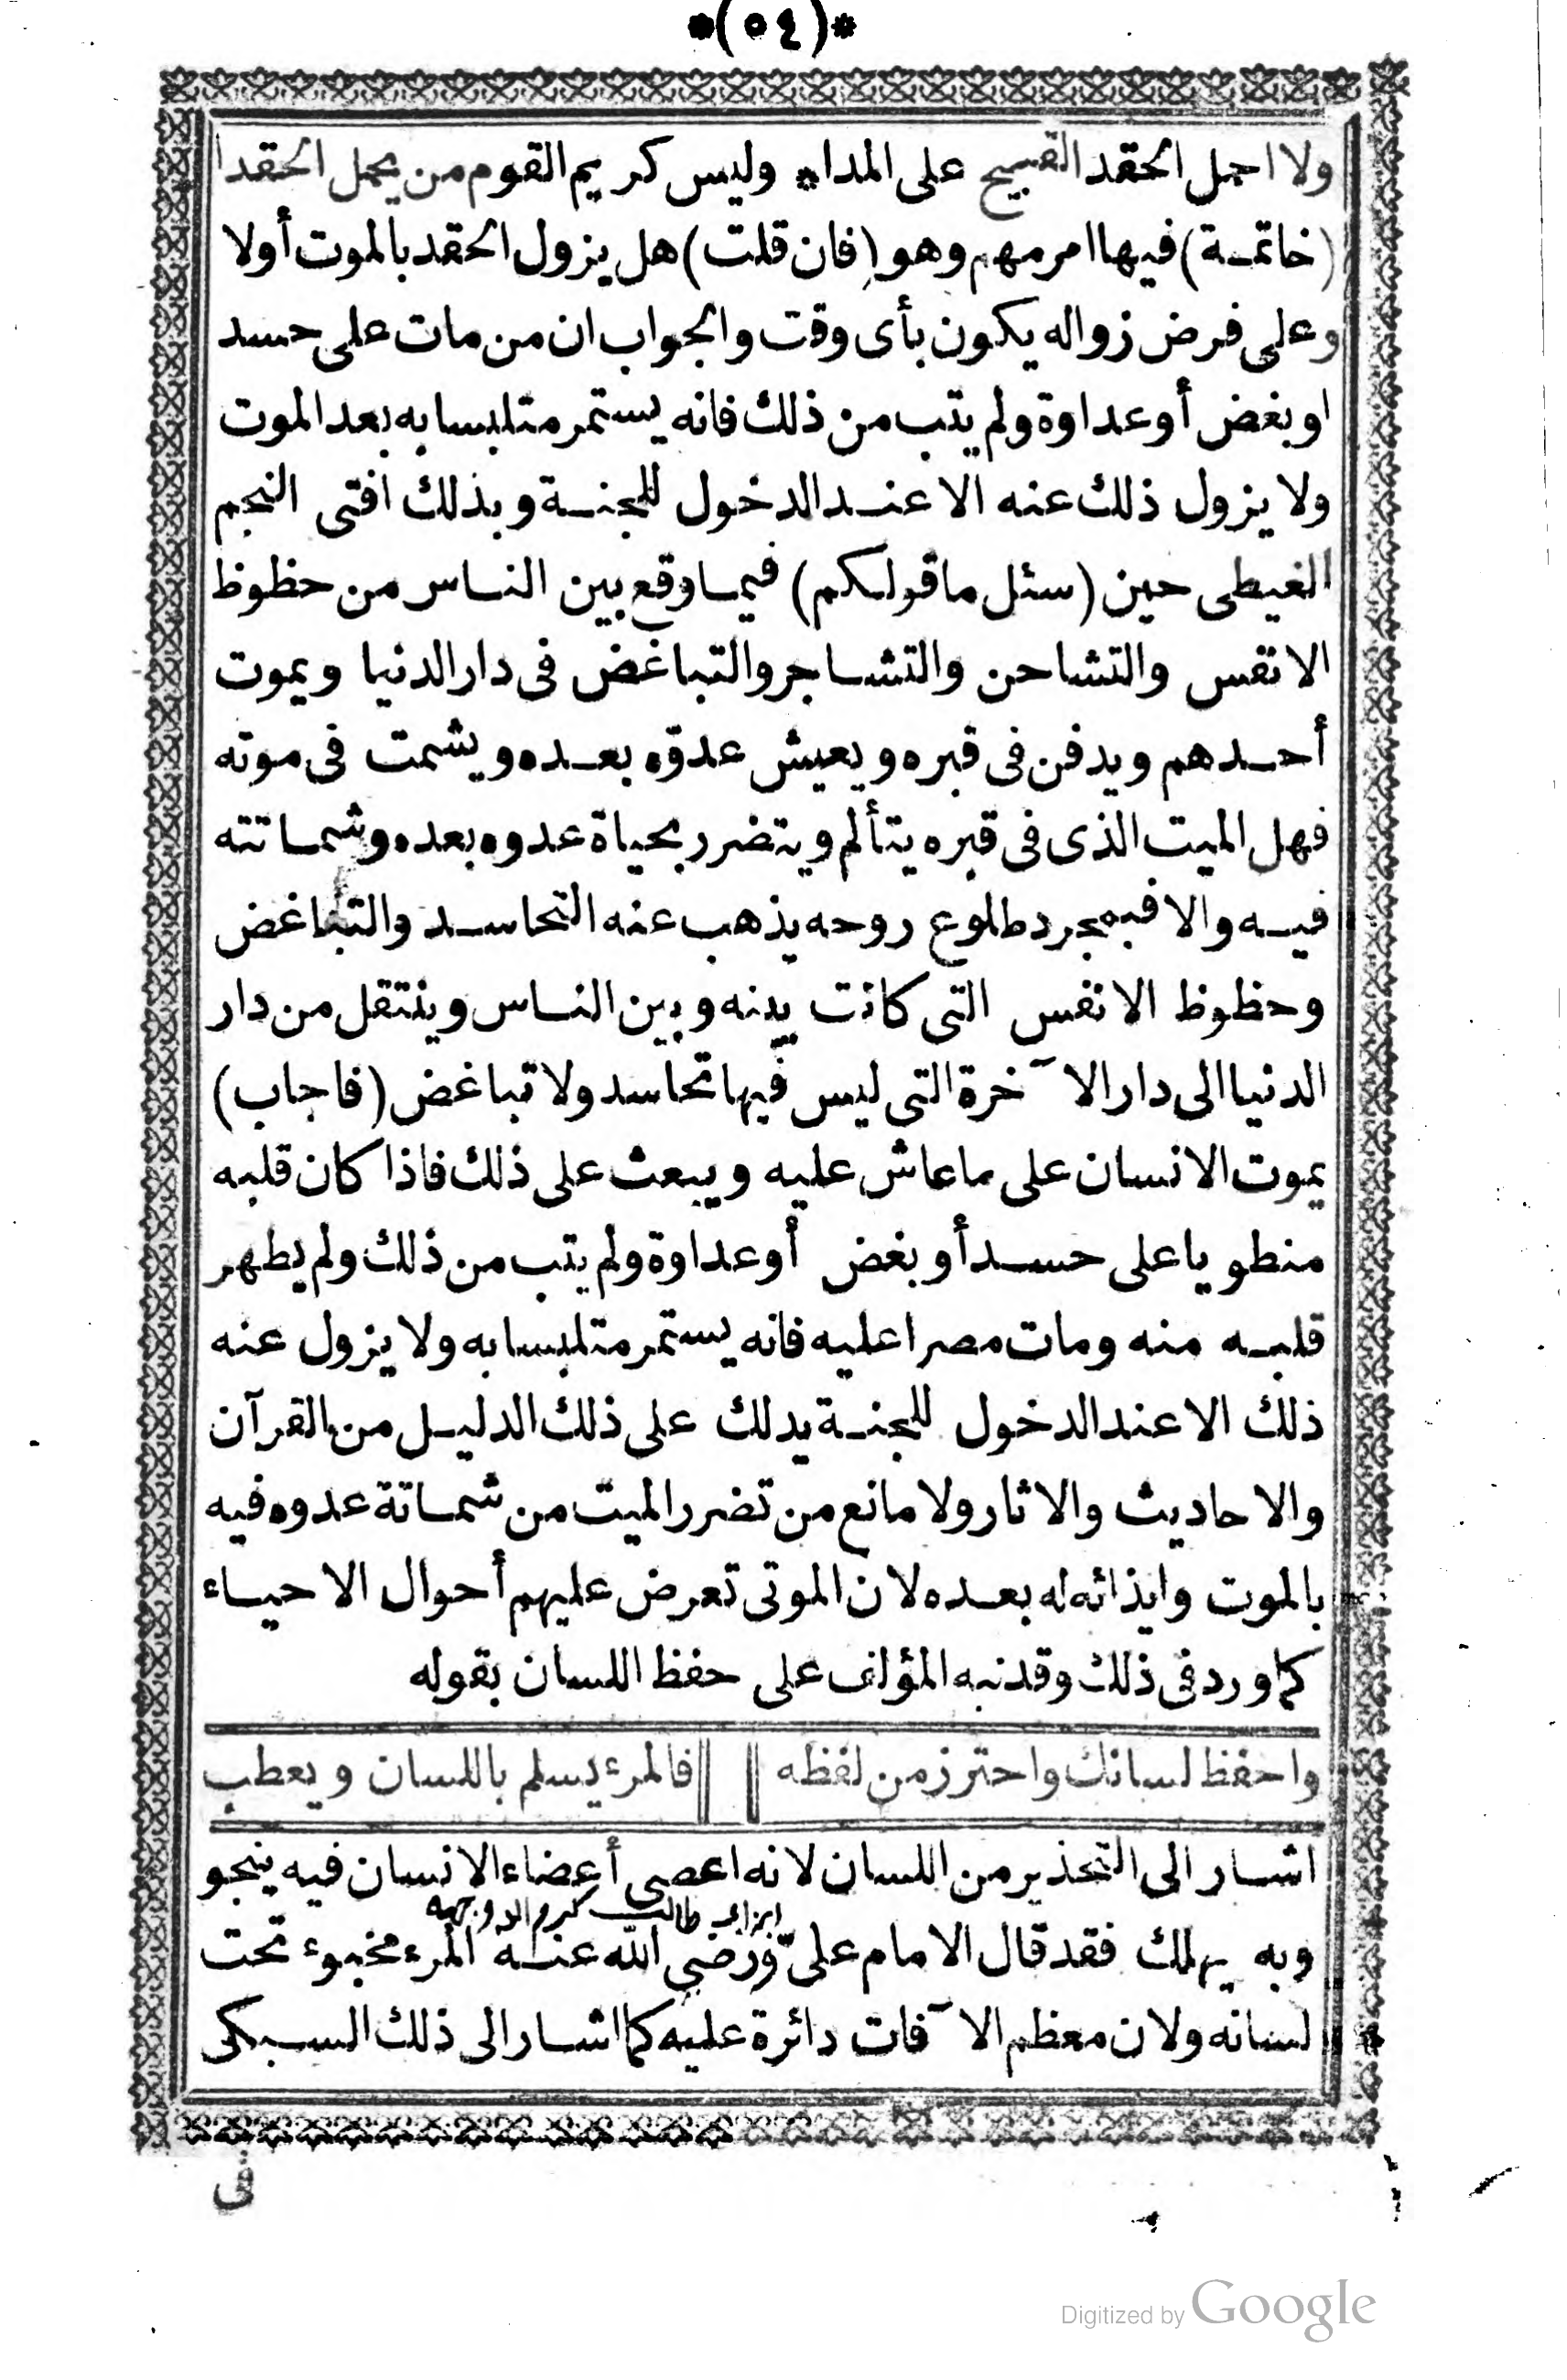 *(٥٤)*
ولا احمل الحقد القبيح على المدا* وليس كريم القوم من يحمل الحقدا
(خاتمة) فيها امر مهم وهو (فان قلت) هل يزول الحقد بالموت أولا
وعلى فرض زواله يكون بأى وقت والجواب ان من مات على حسد
او بغض أو عداوة ولم يتب من ذلك فانه يستمر متلبسا به بعد الموت
ولا يزول ذلك عنه الا عند الدخول للجنة وبذلك افتى النجم
الغيطى حين (سئل ما قولكم) فيما وقع بين الناس من حظوظ
الانفس والتشاحن والتشاجر والتباغض فى دار الدنيا ويموت
أحدهم ويدفن فى قبره ويعيش عدوّه بعده ويشمت فى موته
فهل الميت الذى فى قبره يتألم ويتضرر بحياة عدوه بعده وشماتته
فيه والا فبمجرد طلوع روحه يذهب عنه التحاسد والتباغض
وحظوظ الانفس التى كانت بينه وبين الناس وينتقل من دار
الدنيا الى دار الآخرة التى ليس فيها تحاسد ولا تباغض (فاجاب)
يموت الانسان على ما عاش عليه ويبعث على ذلك فاذا كان قلبه
منطويا على حسد أو بغض أو عداوة ولم يتب من ذلك ولم يطهر
قلبه منه ومات مصرا عليه فانه يستمر متلبسا به ولا يزول عنه
ذلك الا عند الدخول للجنة يدلك على ذلك الدليل من القرآن
والاحاديث والاثار ولا مانع من تضرر الميت من شماتة عدوه فيه
بالموت وايذائه له بعده لان الموتى تعرض عليهم أحوال الاحياء
كما ورد فى ذلك وقد نبه المؤلف على حفظ اللسان بقوله
واحفظ لسانك واحترز من لفظه || فالمرء يسلم باللسان ويعطب
اشار الى التحذير من اللسان لانه اعصى أعضاء الانسان فيه ينجو
ابن ابى طالب كرم الله وجهه
وبه يهلك فقد قال الامام علىّ ورضي الله عنه المرء مخبوء تحت
لسانه ولان معظم الآفات دائرة عليه كما اشار الى ذلك السبكى
فى
Digitized by Google